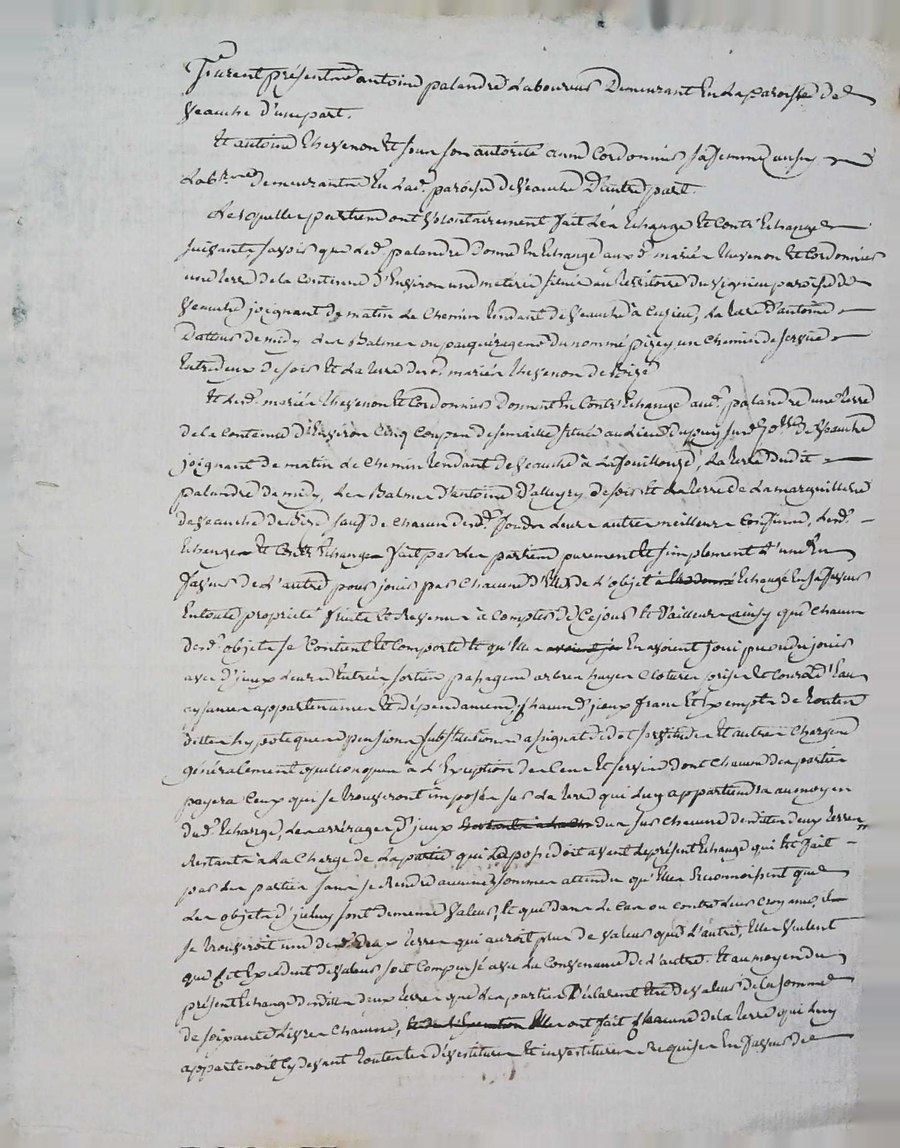 furent présents antoine palandre Laboureur Demeurant En La paroisse de
Veauche d'une part.
Et antoine Thevenon Et sous son autorité anne Cordonnier sa femme aussy
Lab.rs demeurants En Lad. paroisse de Veauche D'autre part.
Lesquelles parties ont volontairement fait Les Echange Et Contr'Echange
suivants, savoir que Led. palandre Donne En Echange auxd. mariés Thevenon Et Cordonnier
une terre de la Contenue d'Environ une meterée située au territoire du paroisse de
Veauche joignant de matin Le Chemin tendant de Veauche à Cuzieu, La terre d'antoine
de midy Les Balmes ou paquérages du nommé un Chemin de servie
Entredeux de soir Et La terre desd. mariés Thevenon de bize
Et Lesd. mariés Thevenon Et Cordonnier Donnent En Contr'Echange aud. palandre une terre
de la Contenue d'Environ Cinq Coupes de semaille située au Lieu du susd. de Veauche
joignant de matin Le Chemin tendant de Veauche à Lafouillouse, La terre dudit
palandre de midy, Les Balmes d'antoine de soir Et La terre de La marguilliere
de Veauche de Bize sauf de Chacun desd. fonds Leurs autres meilleurs Confins, Lesd.
Echange Et Contr'Echange fait par Les parties purement Et simplement d'une En
faveur de L'autre pour jouir par Chacune d'Elles de L'objet Echangé En sa faveur
En toute propriété fruits Et Revenus à Compter de Ce jour Et D'ailleurs ainsy que Chacun
desd. objets se Contient Et Comporte Et qu'Elles En ayoient joui pu ou du jouir
avec d'iceux Leurs Entrées sorties passages arbres hayes Clotures prises Et Cours d'Eau
aysances appartenances Et dépendances, Chacun d'iceux franc Et Exempts de toutes
dettes hypoteques pensions substitutions assignat de dot servitudes Et autres Charges
généralement quelconques à L'Exception des Cens Et servis dont Chacune des parties
payera Ceux qui se trouveront imposés sur La terre qui Luy appartiendra au moyen
dud. Echange, Les arrérages d'iceux dus sur Chacune desdites deux terres
Restants à La Charge de La partie qui La possédoit avant Le présent Echange qui Est fait
par Les parties sans se Rendre aucunes sommes attendu qu'Elles Reconnoissent que
Les objets d'iceluy sont de meme valeur, Et que dans Le Cas ou contre Leur Croyance, il
se trouveroit une desd. deux terres qui auroit plus de valeur que L'autre, Elles veulent
que Cet Excedent de valeur soit Compensé avec La Convenance de L'autre. Et au moyen du
présent Echange desdites deux terres que Les parties Déclarent Etre de valeur de La somme
de soixante Livres Chacune, Elles ont fait Chacune de La terre qui Luy
appartenoit Cy devant toutes Les Devestitures Et investitures Requises En faveur de